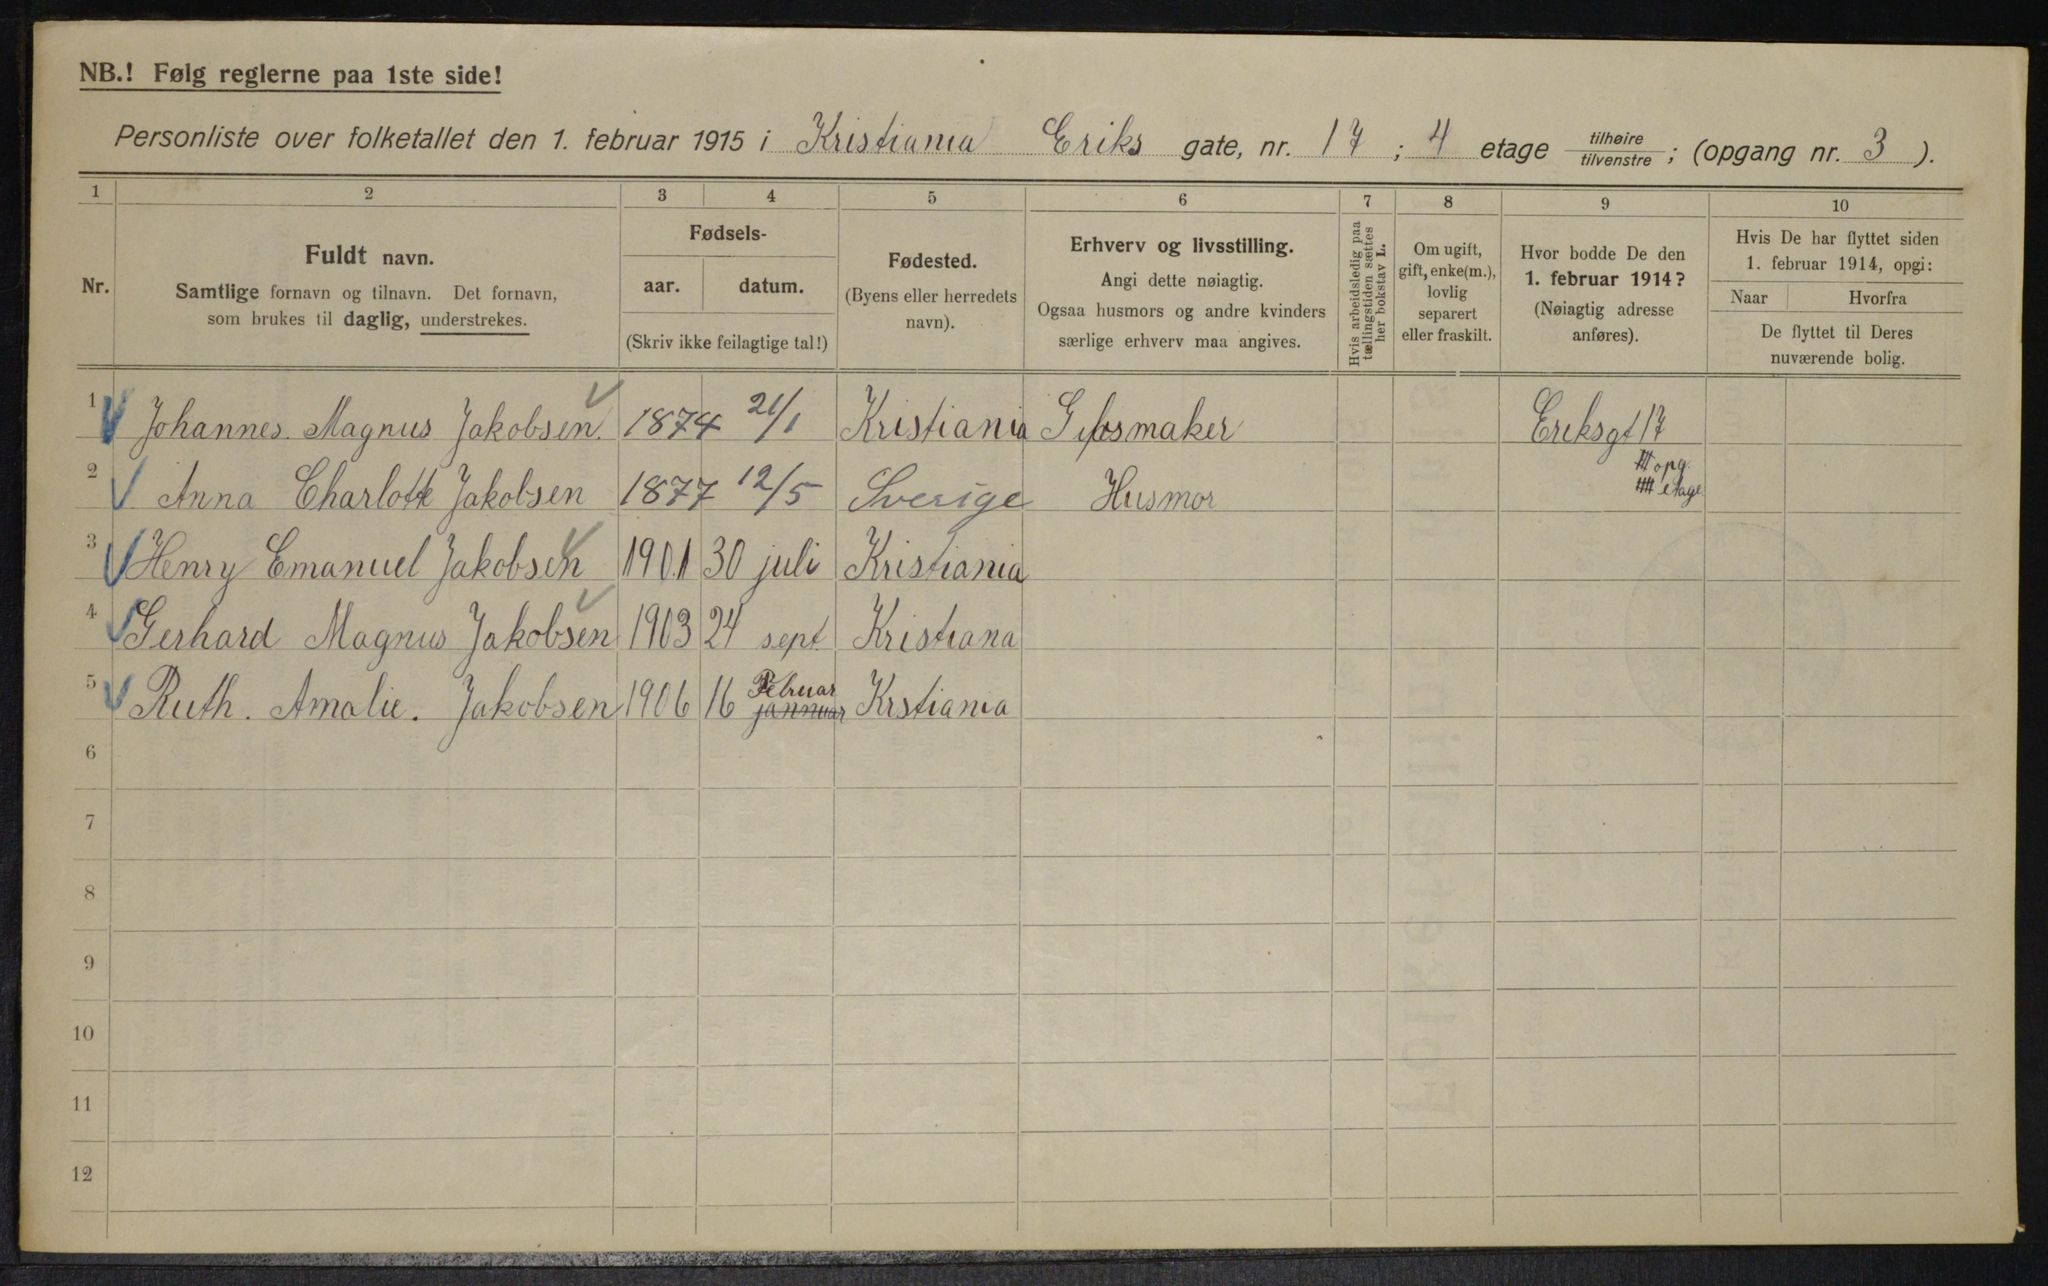 NB.! Følg reglerne paa 1ste side!
Personliste over folketallet den 1. februar 1915 i Kristiania Eriks gate, nr. 17 ; 4 etage tilhøire / tilvenstre ; (opgang nr. 3 ).
1 2 3 4 5 6 7 8 9 10
Nr.
Fuldt navn.
Samtlige fornavn og tilnavn. Det fornavn,
som brukes til daglig, understrekes.
Fødsels-
aar. datum.
(Skriv ikke feilagtige tal!)
Fødested.
(Byens eller herredets
navn).
Erhverv og livsstilling.
Angi dette nøiagtig.
Ogsaa husmors og andre kvinders
særlige erhverv maa angives.
Hvis arbeidsledig paa
tællingstiden sættes
her bokstav L.
Om ugift,
gift, enke(m.),
lovlig
separert
eller fraskilt.
Hvor bodde De den
1. februar 1914?
(Nøiagtig adresse
anføres).
Hvis De har flyttet siden
1. februar 1914, opgi:
Naar Hvorfra
De flyttet til Deres
nuværende bolig.
1 Johannes. Magnus Jakobsen. 1874 21/1 Kristiania Gibsmaker Eriksgt 17
opg.
2 Anna Charlotte Jakobsen 1877 12/5 Sverige Husmor etage
3 Henry Emanuel Jakobsen 1901 30 juli Kristiania
4 Gerhard Magnus Jakobsen 1903 24 sept Kristiana
Februar
5 Ruth. Amalie. Jakobsen 1906 16 jannuar Krstiania
6
7
8
9
10
11
12